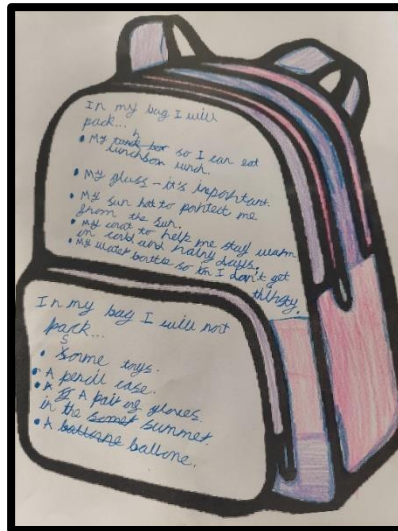 In my bag I will
pack...
• My lunch box so I can eat
lunchbox lunch.
• My gluss - it's important.
• My sun hat to portect me
from the sun.
• My coat to help me stay warm
in cold and rainy days.
• My water bottle so I don't get
thirsty.
In my bag I will not
pack...
• Some toys.
• A pencil case.
• A A pair of gloves
in the somet summer.
• A ballone ballone.